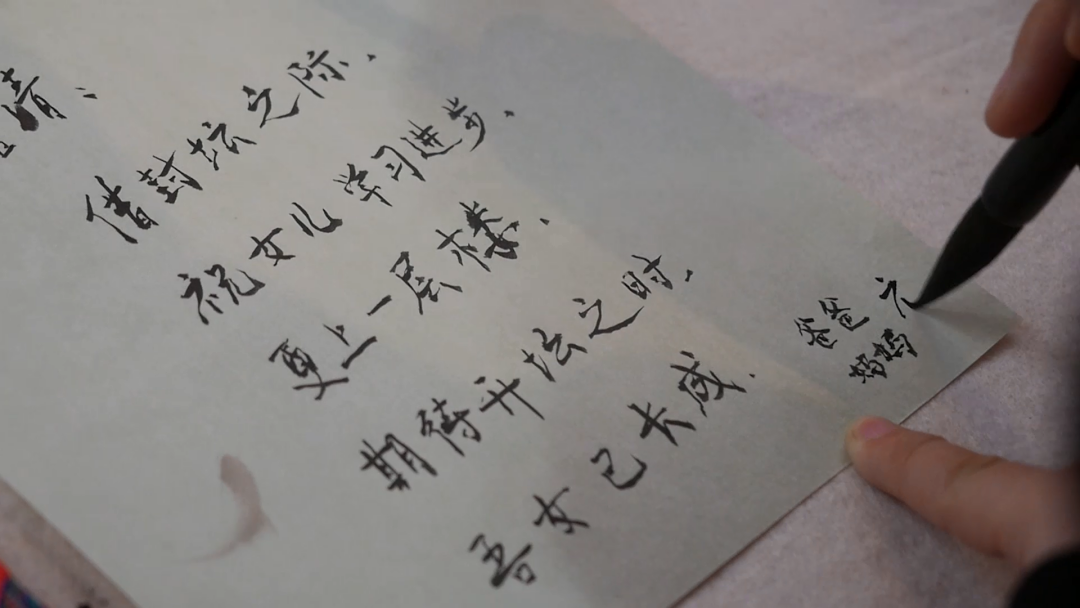 情，
借封坛之际，
祝女儿学习进步，
更上一层楼，
期待开坛之时，
吾女已大成.
爸爸
妈妈